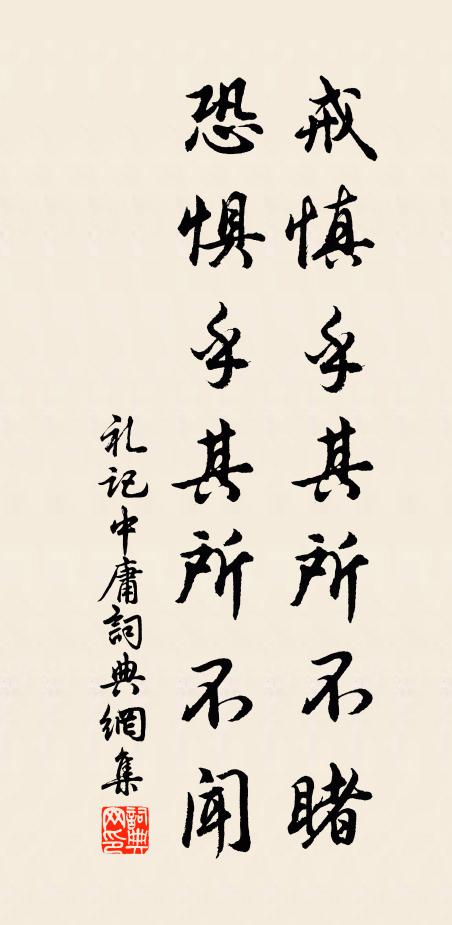 戒慎乎其所不睹
恐惧乎其所不闻
礼记中庸詞典網集
詞典
网印